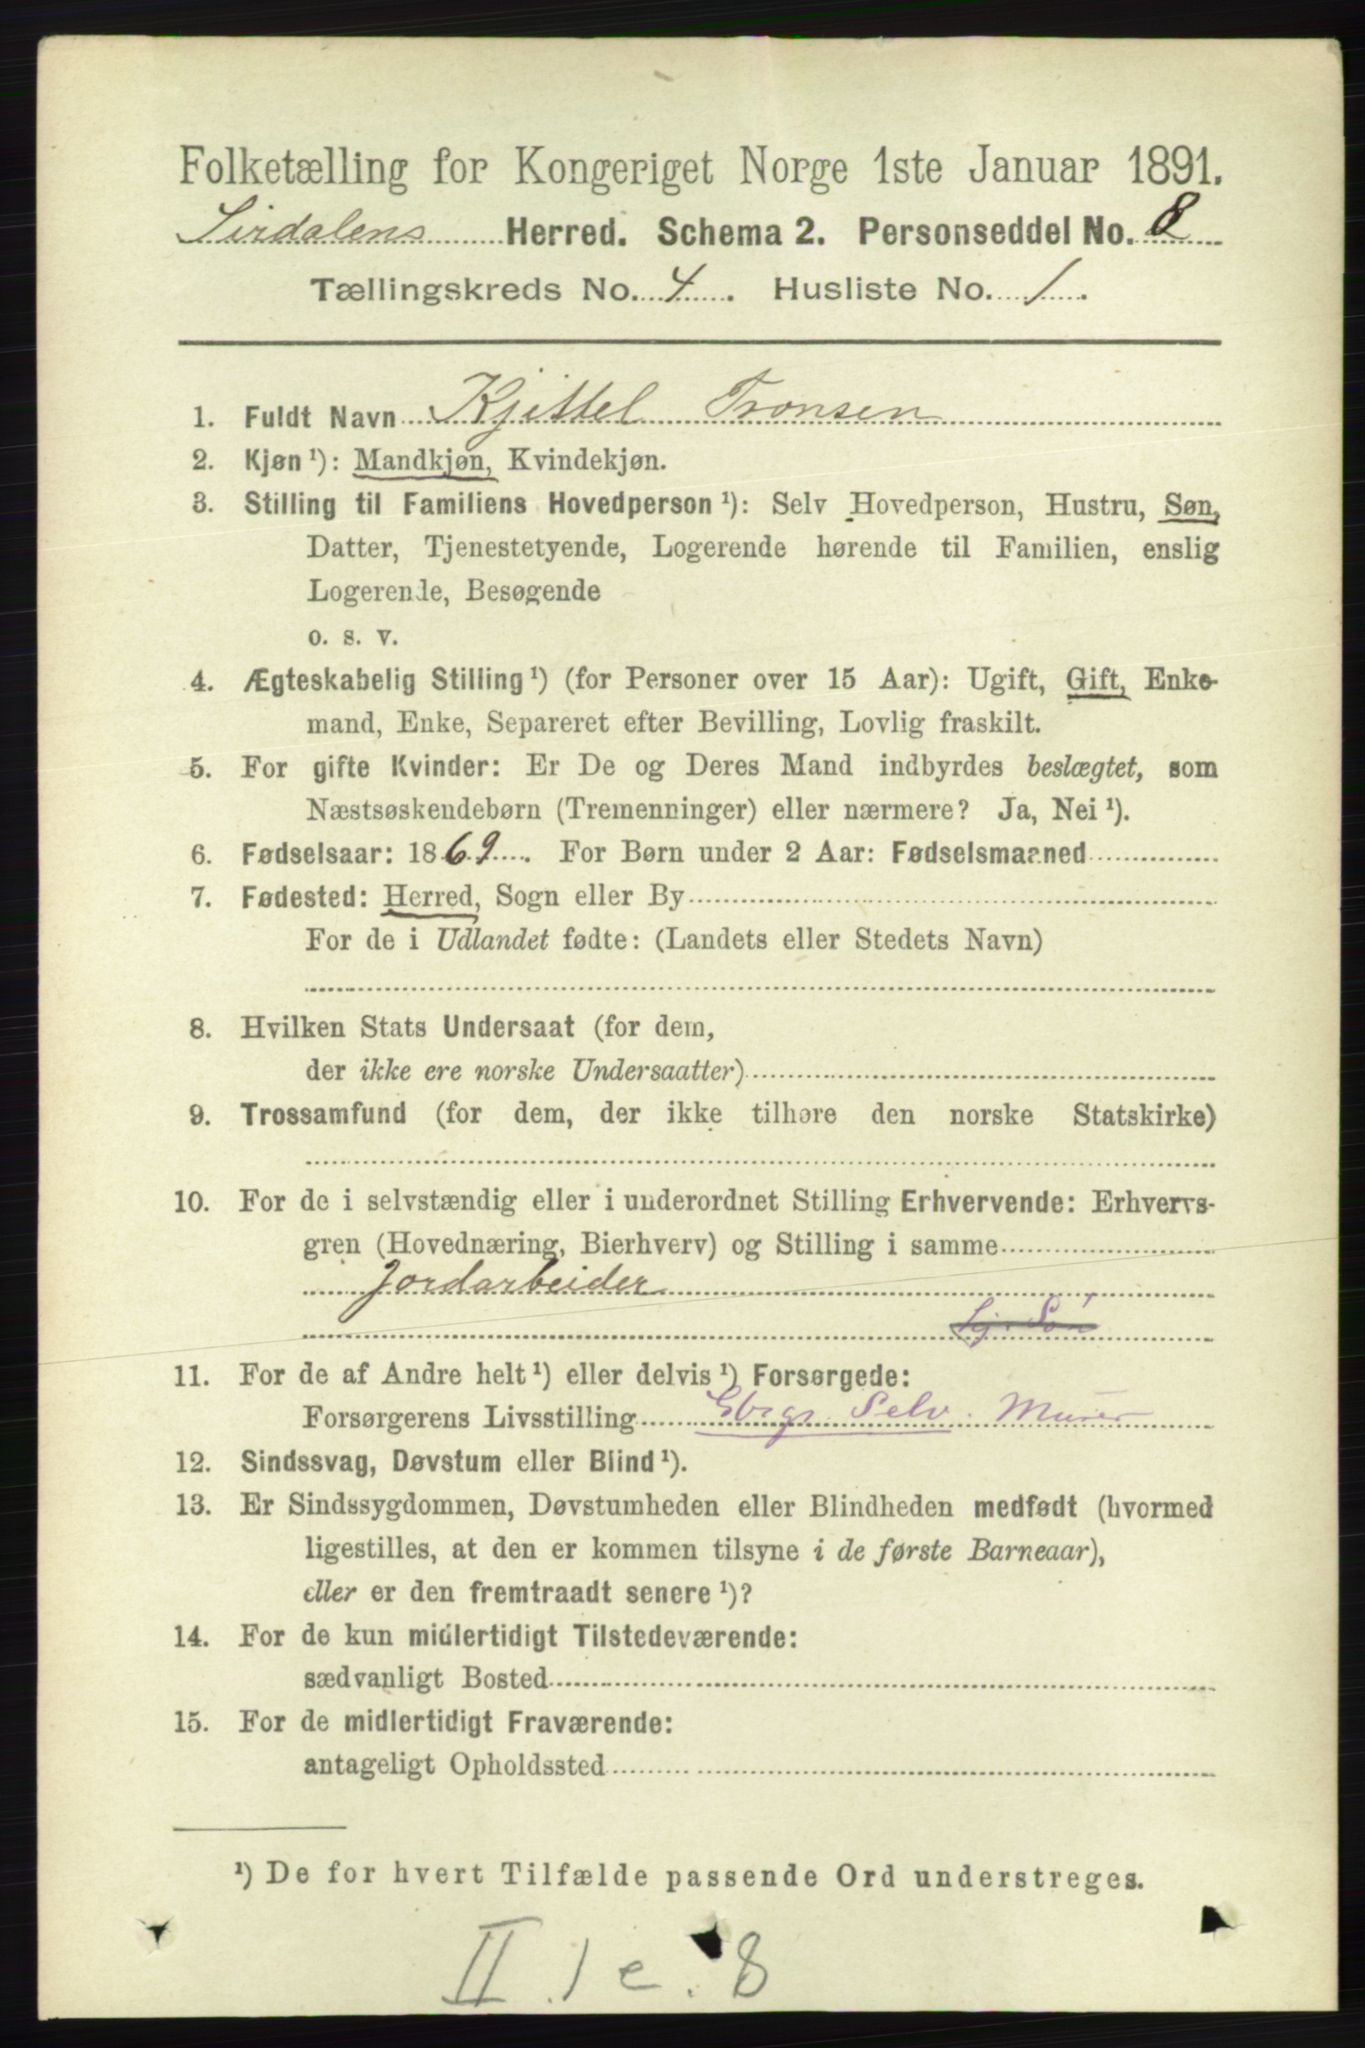 Folketælling for Kongeriget Norge 1ste Januar 1891.
Sirdalens Herred. Schema 2. Personseddel No. 8
Tællingskreds No. 4. Husliste No. 1.
1. Fuldt Navn Kjittel Tronsen
2. Kjøn ¹): Mandkjøn, Kvindekjøn.
3. Stilling til Familiens Hovedperson ¹): Selv Hovedperson, Hustru, Søn,
Datter, Tjenestetyende, Logerende hørende til Familien, enslig
Logerende, Besøgende
o. s. v.
4. Ægteskabelig Stilling ¹) (for Personer over 15 Aar): Ugift, Gift, Enke-
mand, Enke, Separeret efter Bevilling, Lovlig fraskilt.
5. For gifte Kvinder: Er De og Deres Mand indbyrdes beslægtet, som
Næstsøskendebørn (Tremenninger) eller nærmere? Ja, Nei ¹).
6. Fødselsaar: 1869. For Børn under 2 Aar: Fødselsmaaned
7. Fødested: Herred, Sogn eller By
For de i Udlandet fødte: (Landets eller Stedets Navn)
8. Hvilken Stats Undersaat (for dem,
der ikke ere norske Undersaatter)
9. Trossamfund (for dem, der ikke tilhøre den norske Statskirke)
10. For de i selvstændig eller i underordnet Stilling Erhvervende: Erhvervs-
gren (Hovednæring, Bierhverv) og Stilling i samme
Jordarbeider
Søn
11. For de af Andre helt ¹) eller delvis ¹) Forsørgede:
Forsørgerens Livsstilling Gbrgr. Selv. Murer
12. Sindssvag, Døvstum eller Blind ¹).
13. Er Sindssygdommen, Døvstumheden eller Blindheden medfødt (hvormed
ligestilles, at den er kommen tilsyne i de første Barneaar),
eller er den fremtraadt senere ¹)?
14. For de kun midlertidigt Tilstedeværende:
sædvanligt Bosted
15. For de midlertidigt Fraværende:
antageligt Opholdssted
¹) De for hvert Tilfælde passende Ord understreges.
II. 1 e. 8